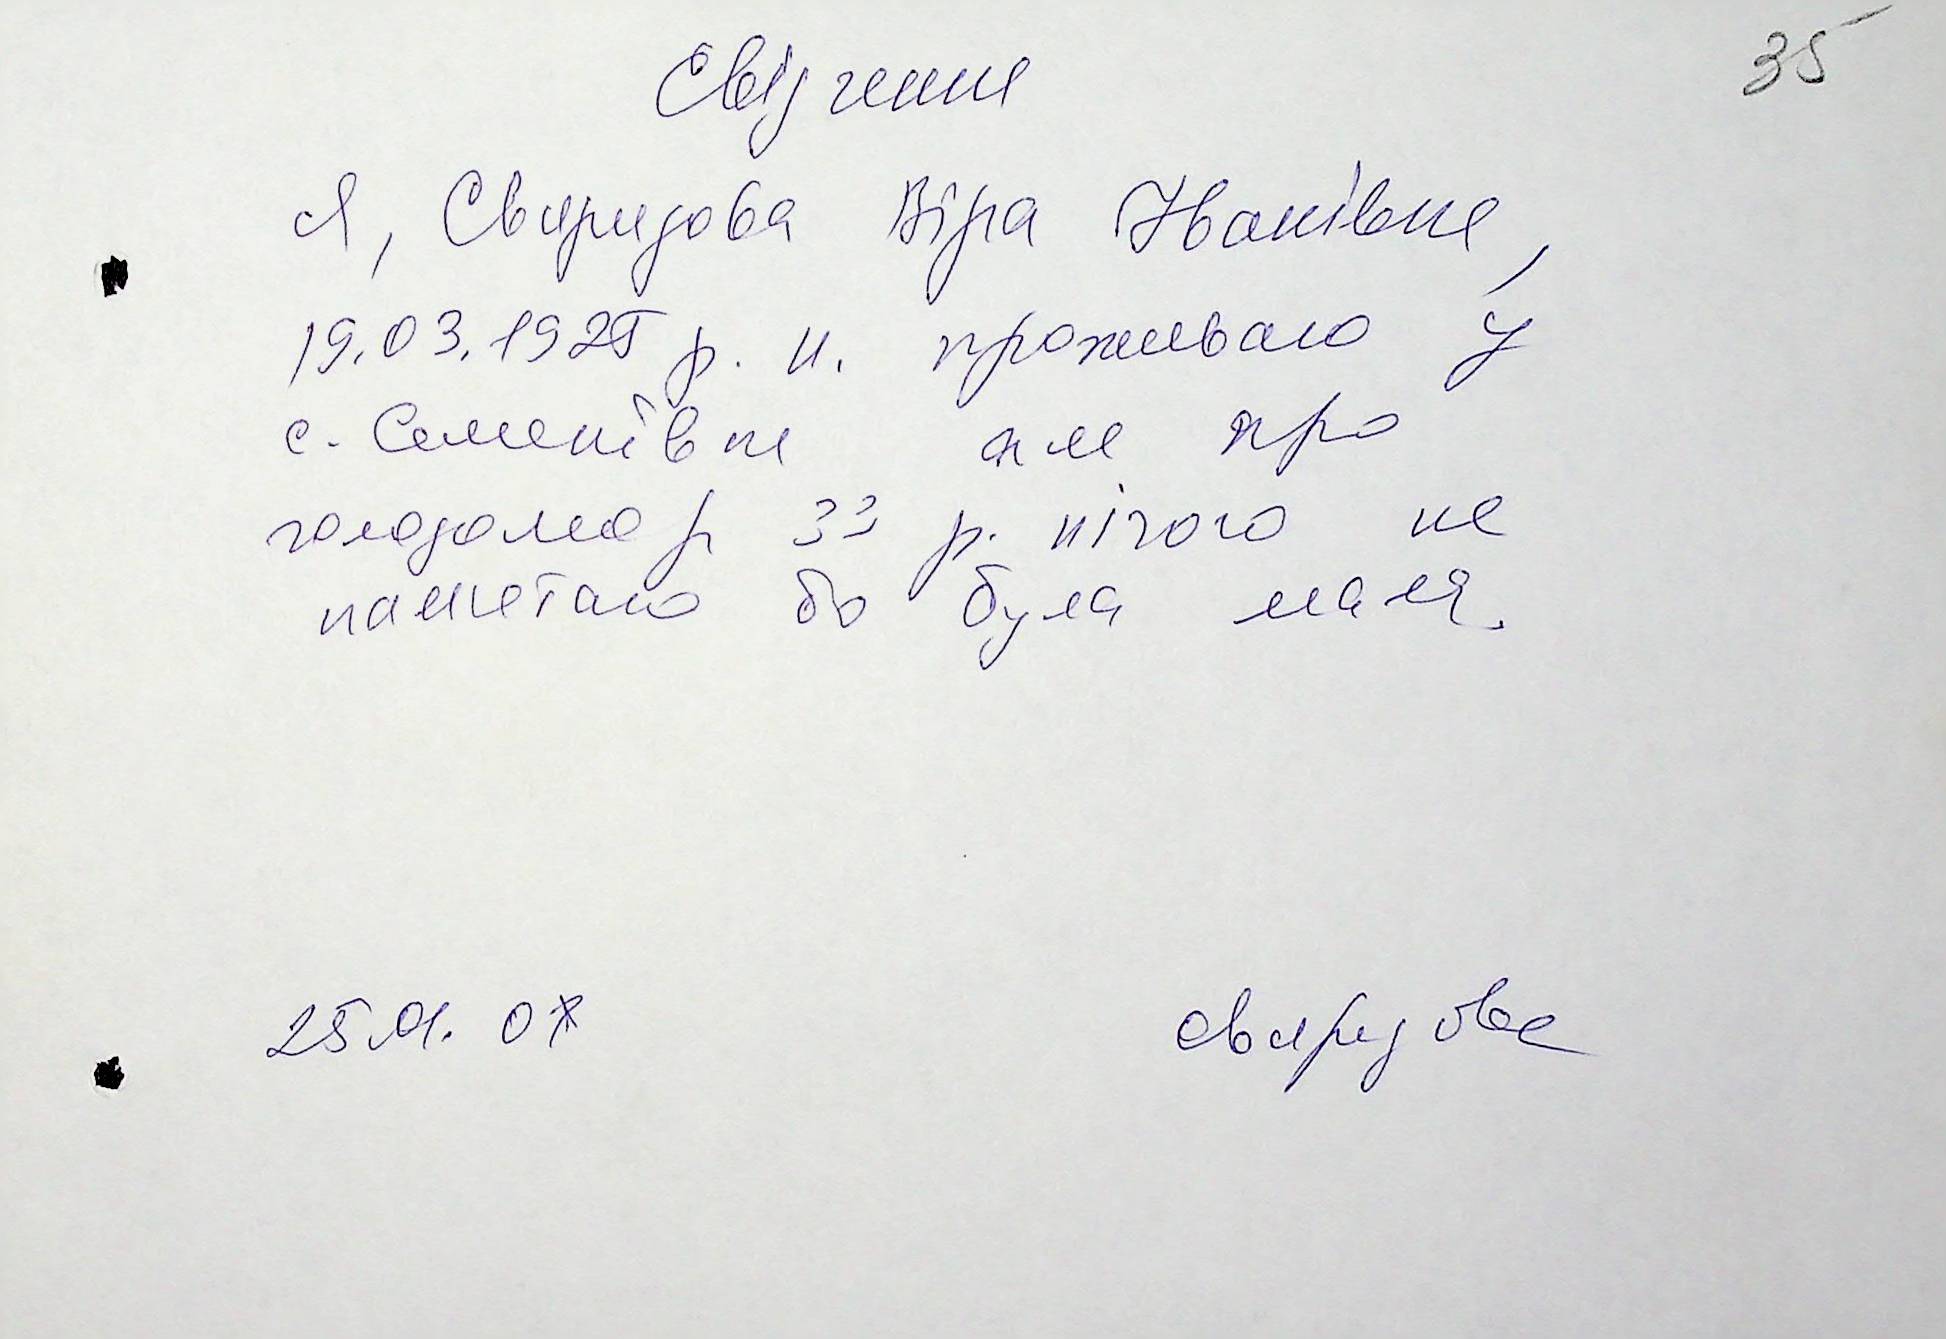 35
Свідчення
Я, Сваридова Віра Іванівна,
19.03.1925 р. н. проживаю у
с. Семенівка але про
голодомор 33 р. нічого не
памятаю бо була мала.
25. 07
Сваридова